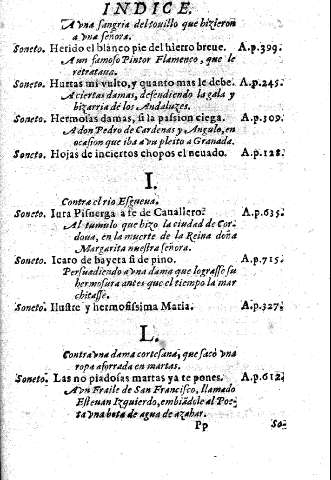 INDICE.
A vna sangria del touillo que hizieron
a vna señora.
Soneto. Herido el blanco pie del hierro breue. A.p.399.
A un famoso Pintor Flamenco, que le
retrataua.
Soneto. Hurtas mi vulto, y quanto mas le debe. A.p.245.
A ciertas damas, defendiendo la gala y
bizarria de los Andaluzes.
Soneto. Hermosas damas, si la passion ciega. A.p.309.
A don Pedro de Cardenas y Angulo, en
ocasion que iba a vn pleito a Granada.
Soneto. Hojas de inciertos chopos el neuado. A.p.128.
I.
Contra el rio Esgueua.
Soneto. Iura Pisuerga a fe de Cauallero. A.p.635.
Al tumulo que hizo la ciudad de Cor-
doua, en la muerte de la Reina doña
Margarita nuestra señora.
Soneto. Icaro de bayeta si de pino. A.p.715.
Persuadiendo a vna dama que lograsse su
hermosura antes que el tiempo la mar
chitasse.
Soneto. Ilustre y hermosissima Maria. A.p.327.
L.
Contra vna dama cortesana, que sacò vna
ropa aforrada en martas.
Soneto. Las no piadosas martas ya te pones. A.p.612.
A vn Fraile de San Francisco, llamado
Esteuan Izquierdo, embiādole al Poe-
ta vna bota de agua de azahar.
Pp So-